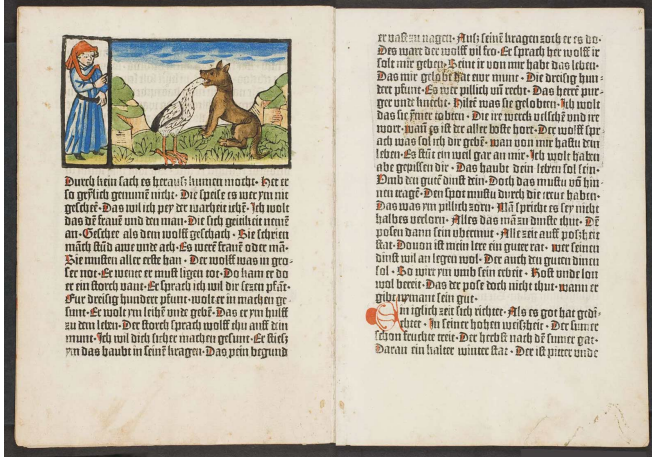 Durch kein sach es heraus kumen mocht · Het er
so greſlich genumē nicht · Die ſpeiſe es wer ym nit
geſcheē · Das wil ich pey der warheit iehē · Ich wolt
das dē frauē vnd den man · Die ſich geitikeit nemē
an · Geſchee als dem wolff geſchach · Sie ſchrien
māch ſtūd awe vnde ach · Es weer frauē oder mā ·
Sie muſten alle erſte han · Der wolff was in gro‐
ſer not · Er wente er muſt ligen tot · Do kam er do
er ein ſtorch vant · Er ſprach ich wil dir ſetzē pfāt ·
Fur dreiſig hundert pfunt · wolt er in machen ge
ſunt · Er wolt ym leihē vnd gebē · Das er ym hulff
zu dem leben · Der ſtorch ſprach wolff thu auff dein
munt · Ich wil dich ſicher machen geſunt · Er ſties
ym das haubt in ſeinē kragen · Das pein begund
er vaſt zu nagen · Auſz ſeinē kragen zoch er es do ·
Des wart der wolff vil fro · Er ſprach her wolff ir
ſolt mir geben · Seint ir von mir habt das leben ·
Das mir gelobt hat ewr munt · Die dreiſig hun‐
dert pfunt · Es wer pillich vn̄ recht · Das heere pur‐
ger vnd knecht · Hilte was ſie geloben · Ich wolt
das ſie ymer tobten · Die ire werck velſchē vnd ire
wort · wan̄ es iſt der aller boſte hort · Der wolff ſpr
ach was ſol ich dir gebē · wan von mir haſtu dein
leben · Es ſtūt ein weil gar an mir · Ich wolt haben
abe gepiſſen dir · Das haubt dein leben ſol ſein ·
Vnd den gutē dinſt dein · Doch das muſtu vō hin‐
nen tragē · Den ſpot muſtu durch die iecur haben ·
Das was ym pillich zorn · Mā ſpricht es ſey nicht
halbes verlorn · Alles das mā zu dinſte thut · Dē
poſen dann ſein vbermut · Alle zeit auff poſzheit
ſtat · Douon iſt mein leer ein guter rat · wer ſeinen
dinſt wil an legen wol · Der auch den guten dinen
ſol · So wirt ym vmb ſein erbeit · Roſt vnde lon
wol bereit · Das der poſe doch nicht thut · wann er
gibt nymant ſein gut ·
Ein iglich zeit ſich richtet · Als es got hat gedi‐
chtet · In ſeiner hohen weiſzheit · Der ſumer
ſchon feuchte treit · Der herbſt nach dē ſumer gat ·
Daran ein kalter winter ſtat · Der iſt pitter vnde